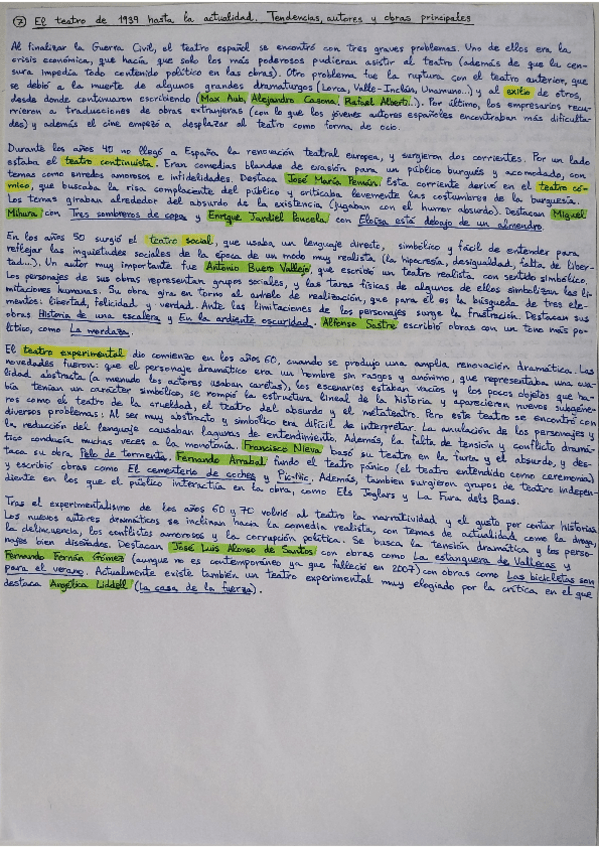 ⑦ El teatro de 1939 hasta la actualidad. Tendencias, autores y obras principales
Al finalizar la Guerra Civil, el teatro español se encontró con tres graves problemas. Uno de ellos era la
crisis económica, que hacía que solo los más poderosos pudieran asistir al teatro (además de que la cen-
sura impedía todo contenido político en las obras). Otro problema fue la ruptura con el teatro anterior, que
se debió a la muerte de algunos grandes dramaturgos (Lorca, Valle-Inclán, Unamuno...) y al exilio de otros,
desde donde continuaron escribiendo (Max Aub, Alejandro Casona, Rafael Alberti...). Por último, los empresarios recu-
rrieron a traducciones de obras extranjeras (con lo que los jóvenes autores españoles encontraban más dificulta-
des) y además el cine empezó a desplazar al teatro como forma de ocio.
Durante los años 40 no llegó a España la renovación teatral europea, y surgieron dos corrientes. Por un lado
estaba el teatro continuista. Eran comedias blandas de evasión para un público burgués y acomodado, con
temas como enredos amorosos e infidelidades. Destaca José María Pemán. Esta corriente derivó en el teatro có-
mico, que buscaba la risa complaciente del público y criticaba levemente las costumbres de la burguesía.
Los temas giraban alrededor del absurdo de la existencia (jugaban con el humor absurdo). Destacan Miguel
Mihura con Tres sombreros de copa y Enrique Jardiel Poncela con Eloísa está debajo de un almendro.
En los años 50 surgió el teatro social, que usaba un lenguaje directo, simbólico y fácil de entender para
reflejar las inquietudes sociales de la época de un modo muy realista (la hipocresía, desigualdad, falta de liber-
tad...). Un autor muy importante fue Antonio Buero Vallejo, que escribió un teatro realista con sentido simbólico.
Los personajes de sus obras representan grupos sociales, y las taras físicas de algunos de ellos simbolizan las li-
mitaciones humanas. Su obra gira en torno al anhelo de realización, que para él es la búsqueda de tres ele-
mentos: libertad, felicidad y verdad. Ante las limitaciones de los personajes surge la frustración. Destacan sus
obras Historia de una escalera y En la ardiente oscuridad. Alfonso Sastre escribió obras con un tono más po-
lítico, como La mordaza.
El teatro experimental dio comienzo en los años 60, cuando se produjo una amplia renovación dramática. Las
novedades fueron: que el personaje dramático era un hombre sin rasgos y anónimo, que representaba una cua-
lidad abstracta (a menudo los actores usaban caretas), los escenarios estaban vacíos y los pocos objetos que ha-
bía tenían un carácter simbólico, se rompió la estructura lineal de la historia y aparecieron nuevos subgéne-
ros como el teatro de la crueldad, el teatro del absurdo y el metateatro. Pero este teatro se encontró con
diversos problemas: Al ser muy abstracto y simbólico era difícil de interpretar. La anulación de los personajes y
la reducción del lenguaje causaban lagunas de entendimiento. Además, la falta de tensión y conflicto dramá-
tico conducía muchas veces a la monotonía. Francisco Nieva basó su teatro en la furia y el absurdo, y des-
taca su obra Pelo de tormenta. Fernando Arrabal fundó el teatro pánico (el teatro entendido como ceremonia)
y escribió obras como El cementerio de coches y Pic-Nic. Además, tambien surgieron grupos de teatro indepen-
diente en los que el público interactúa en la obra, como Els Joglars y La Fura dels Baus.
Tras el experimentalismo de los años 60 y 70 volvió al teatro la narratividad y el gusto por contar historias.
Los nuevos autores dramáticos se inclinan hacia la comedia realista, con temas de actualidad como la droga,
la delincuencia, los conflictos amorosos y la corrupción política. Se busca la tensión dramática y los perso-
najes bien diseñados. Destacan José Luis Alonso de Santos con obras como La estanquera de Vallecas y
Fernando Fernán Gómez (aunque no es contemporáneo ya que falleció en 2007) con obras como Las bicicletas son
para el verano. Actualmente existe también un teatro experimental muy elogiado por la crítica en el que
destaca Angélica Liddell (La casa de la fuerza).